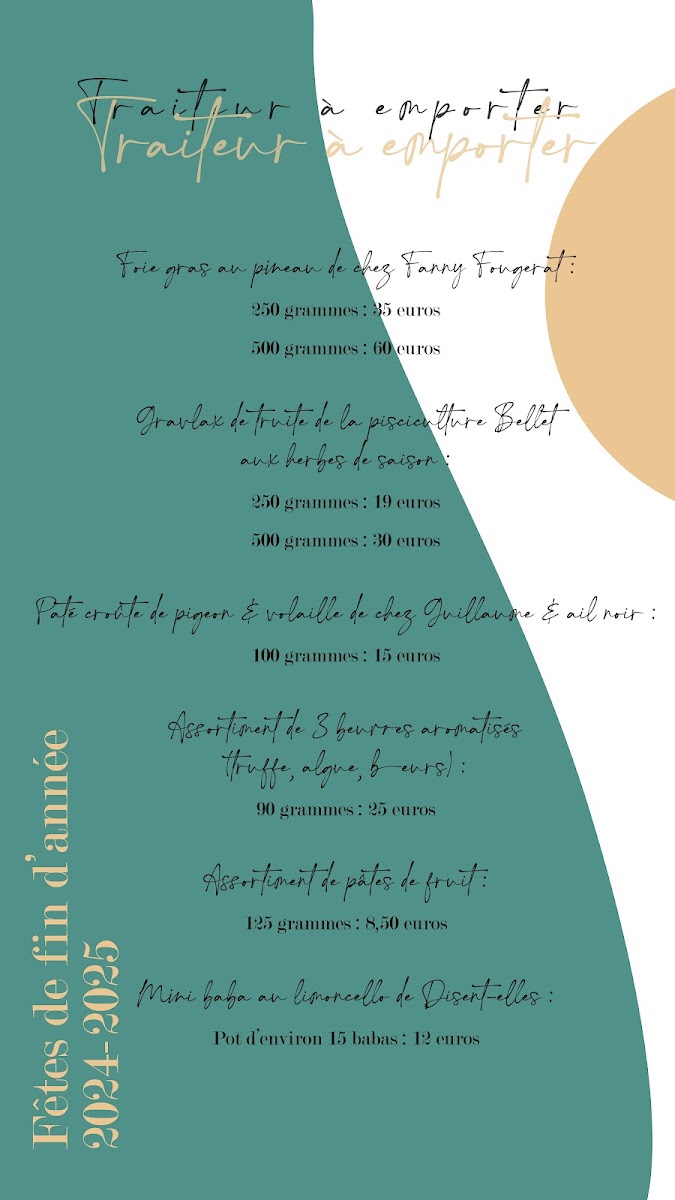 Traiteur à emporter
Traiteur à emporter
Foie gras au pineau de chez Fanny Fougerat :
250 grammes : 35 euros
500 grammes : 60 euros
Gravlax de truite de la pisciculture Bellet
aux herbes de saison :
250 grammes : 19 euros
500 grammes : 30 euros
Pâté croûte de pigeon & volaille de chez Guillaume & ail noir :
100 grammes : 15 euros
Assortiment de 3 beurres aromatisés
(truffe, algue, :
90 grammes : 25 euros
Assortiment de pâtes de fruit :
125 grammes : 8,50 euros
Mini baba au limoncello de Disent-elles :
Pot d'environ 15 babas : 12 euros
Fêtes de fin d'année
2024-2025